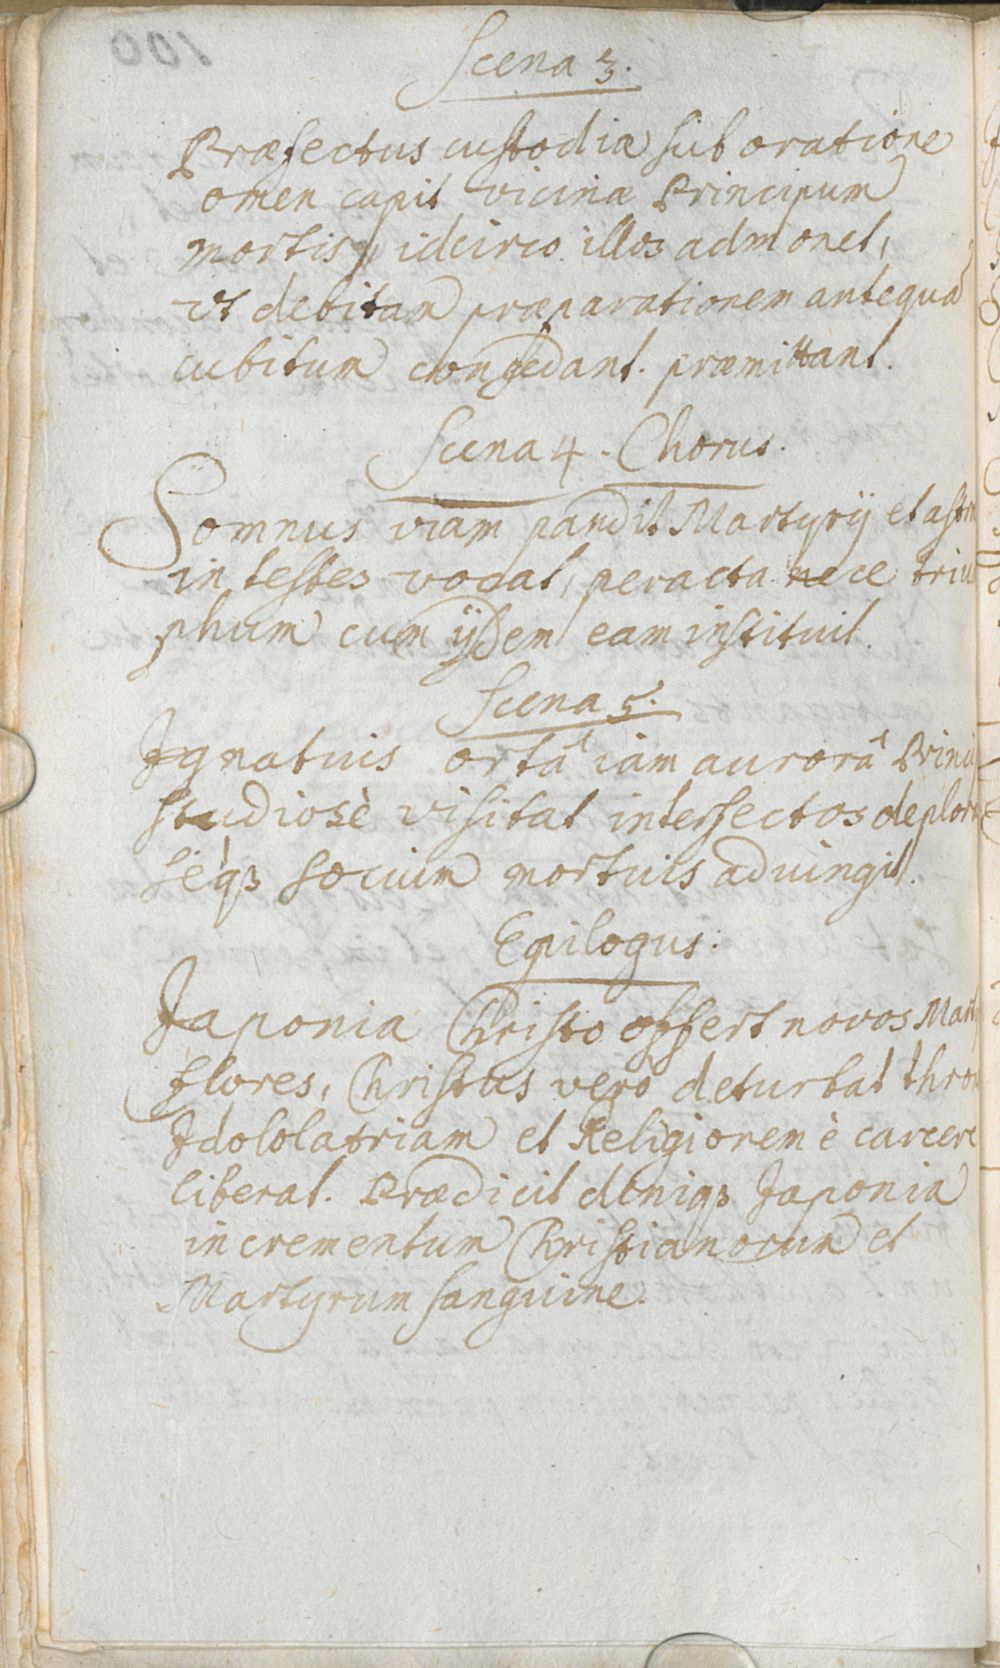 Scena 3.
Præfectus custodiæ sub oratione
omen capit vicinæ Principum
mortis, idcirco illos admonet,
vt debitam præparationem antequā
cubitum concedant. præmittant.
Scena 4. Chorus.
Somnus viam pandit Martyrij et astra
in testes vocat, peracta nece trium
phum cum ijsdem eam instituit.
Scena 5.
Ignatius ortâ iam aurorâ Princi
studiosè visitat interfectos deplora
séqȝ socium mortuis adiungit.
Epilogus.
Japonia Christo offert novos Mart
flores, Christus vero deturbat thro
Idololatriam et Religionem è carcere
liberat. Prædicit deniqȝ Japoniæ
incrementum Christianorum et
Martyrum sanguine.